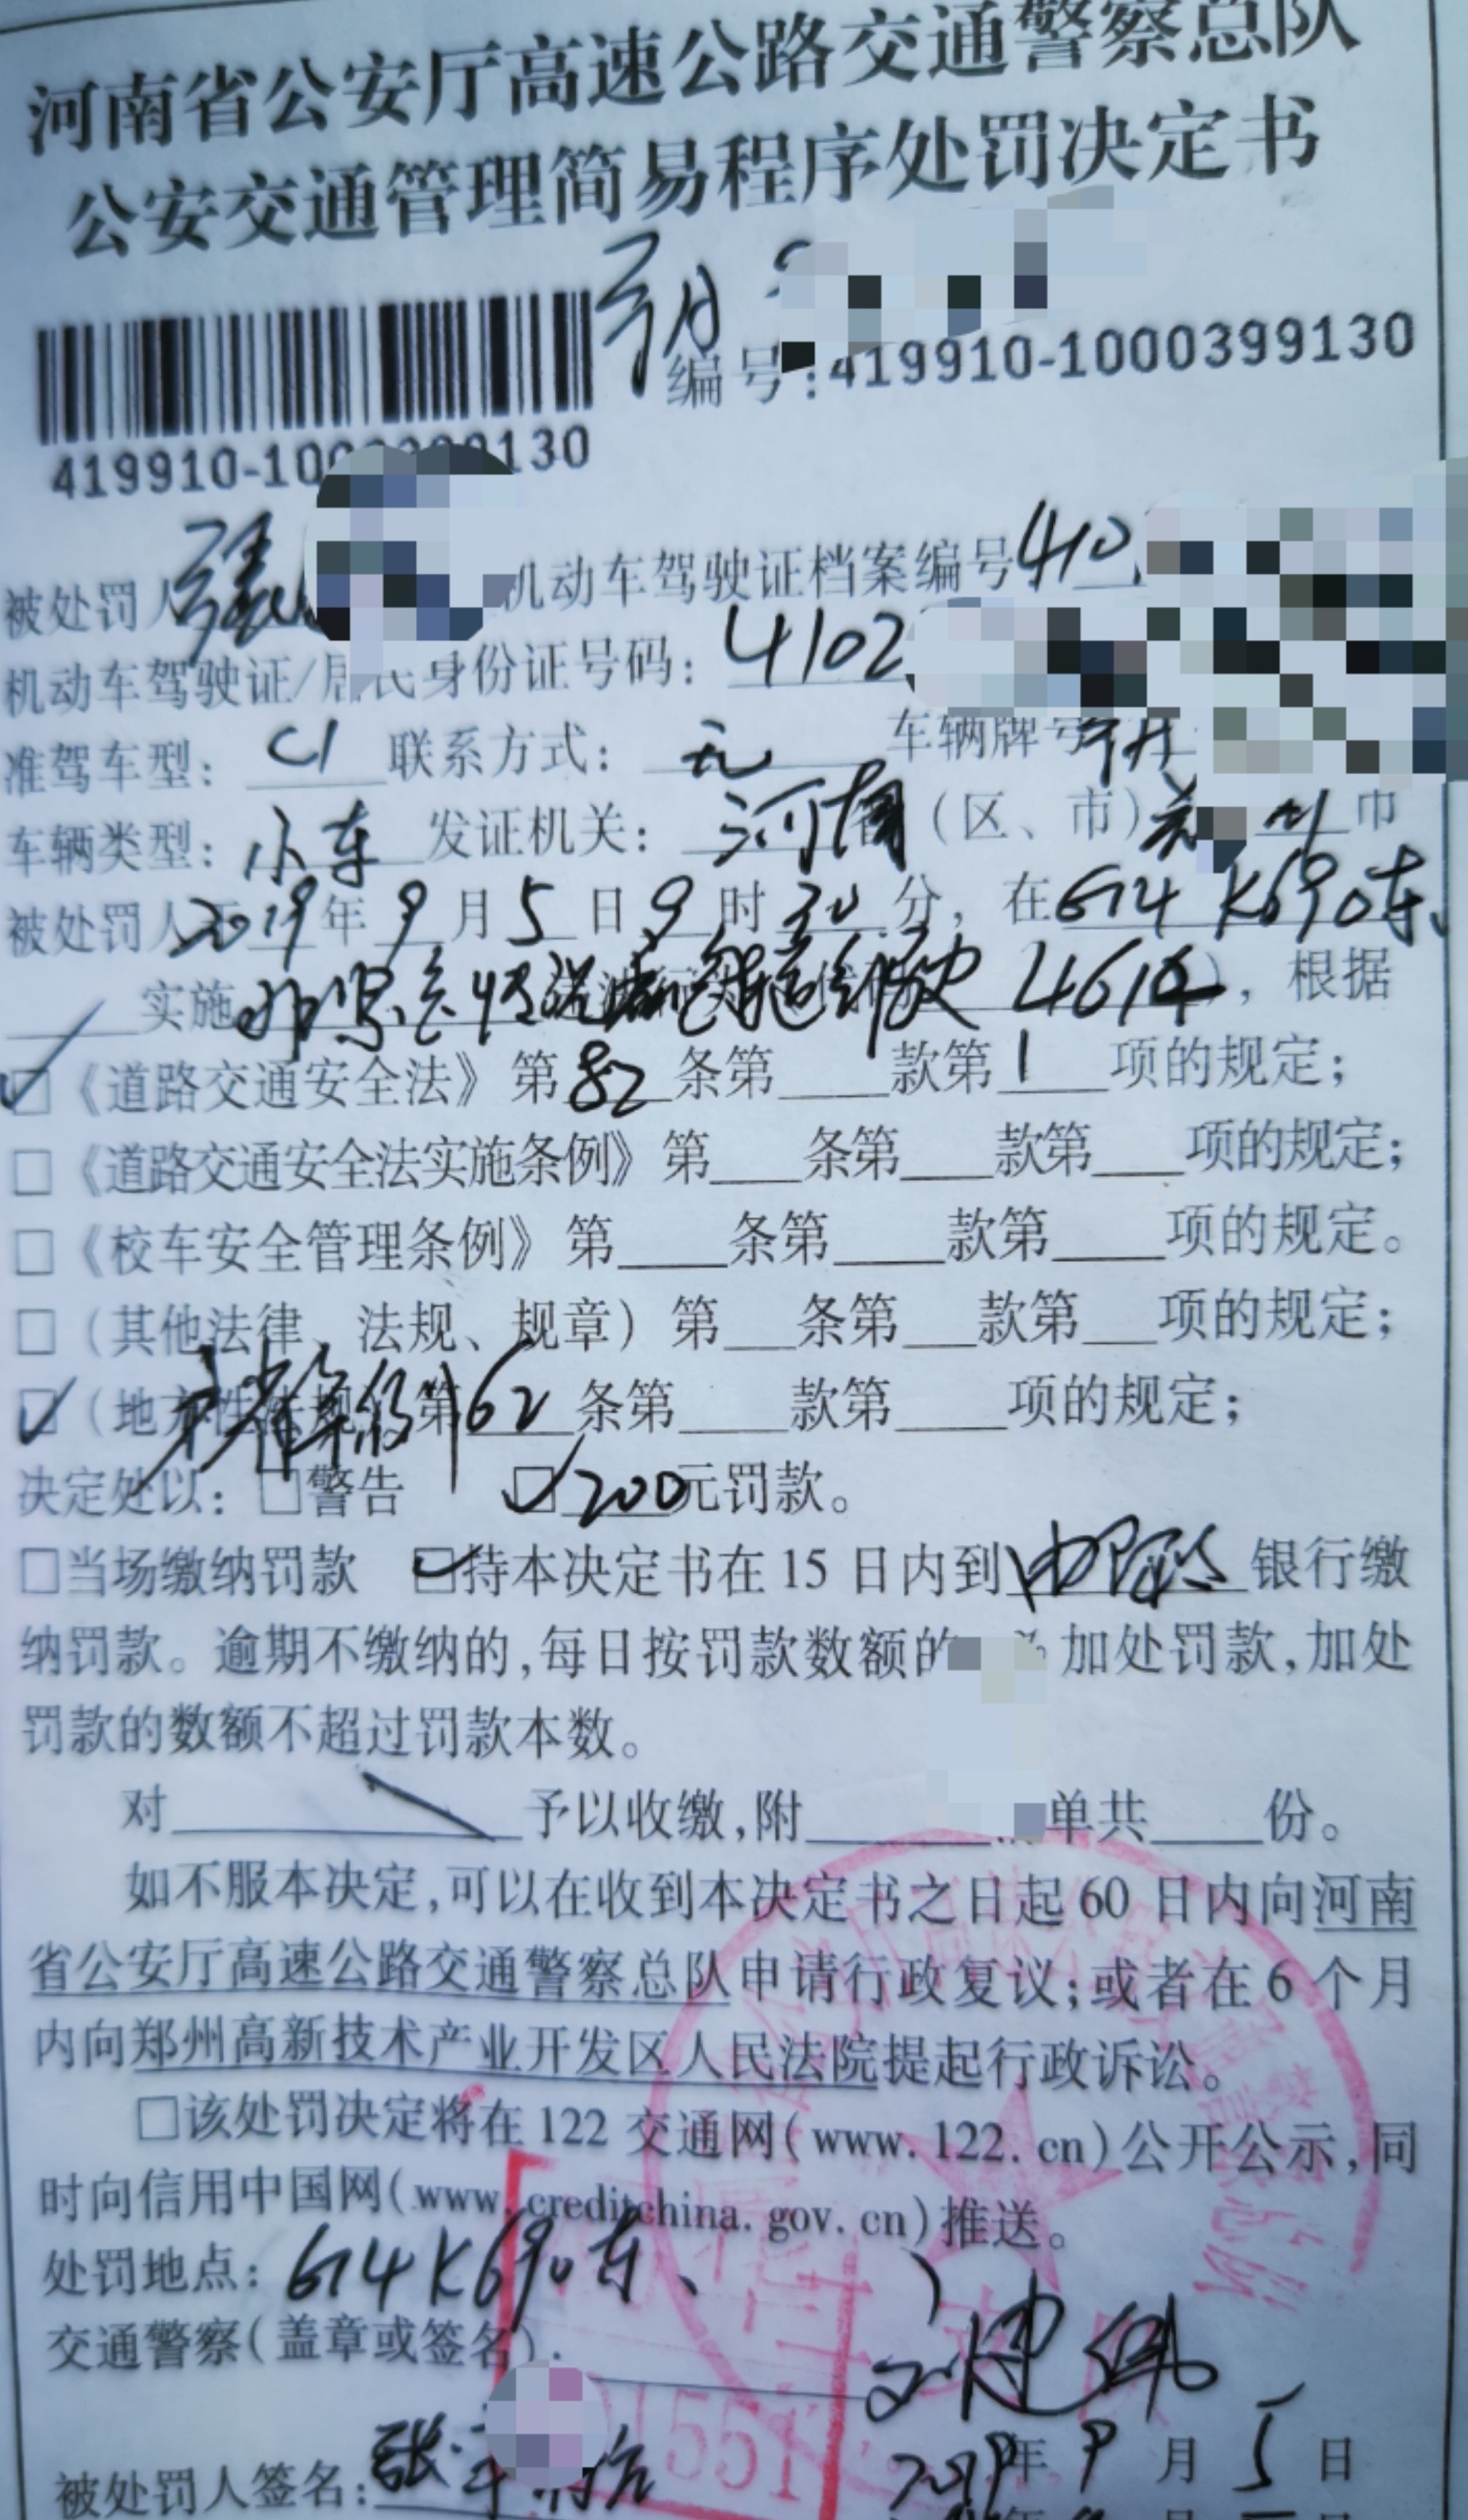 河南省公安厅高速公路交通警察总队
公安交通管理简易程序处罚决定书
编号:419910-1000399130
419910-100 130
被处罚人 机动车驾驶证档案编号410
机动车驾驶证/居民身份证号码: 4102
准驾车型: C1 联系方式: 无 车辆牌号
车辆类型: 小车 发证机关: 河南省(区、市) 市
被处罚人于2019年9月5日9时30分,在G14 K690东、
实施非紧急情况 4614),根据
☑《道路交通安全法》第82条第___款第1项的规定;
□《道路交通安全法实施条例》第___条第___款第___项的规定;
□《校车安全管理条例》第___条第___款第___项的规定。
□(其他法律、法规、规章)第___条第___款第___项的规定;
☑(地方性法规)第62条第___款第___项的规定;
决定处以: □警告 ☑200元罚款。
□当场缴纳罚款 ☑持本决定书在15日内到 银行缴
纳罚款。逾期不缴纳的,每日按罚款数额的 加处罚款,加处
罚款的数额不超过罚款本数。
对___予以收缴,附___单共___份。
如不服本决定,可以在收到本决定书之日起60日内向河南
省公安厅高速公路交通警察总队申请行政复议;或者在6个月
内向郑州高新技术产业开发区人民法院提起行政诉讼。
□该处罚决定将在122交通网(www.122.cn)公开公示,同
时向信用中国网(www.creditchina.gov.cn)推送。
处罚地点: G14 K690东、
交通警察(盖章或签名):
被处罚人签名: 张 2019年9月5日